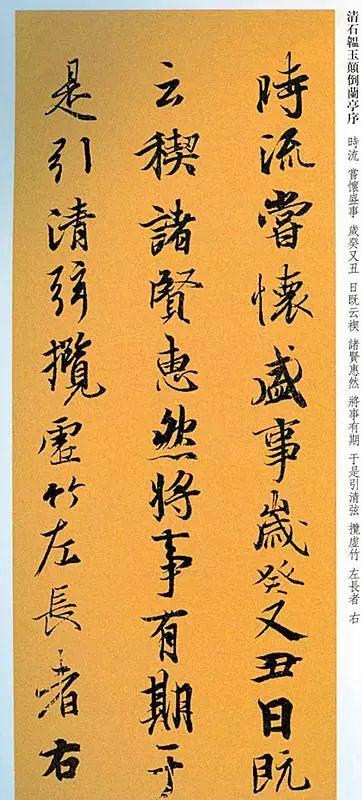 清石韞玉顛倒蘭亭序 時流 嘗懷盛事 歲癸又丑 日既云禊 諸賢惠然 將事有期 于是引清弦 攬虛竹 左長者 右
時流嘗懷盛事歲癸又丑日既
云稧諸賢惠然將事有期于
是引清弦攬虛竹左長者右